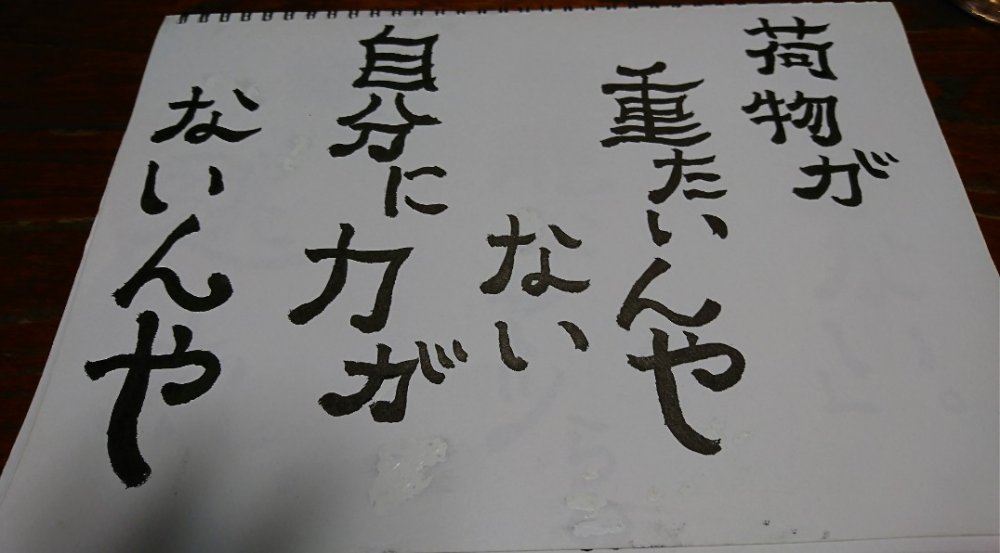 荷物が
重たいんや
ない
自分に
力が
ないんや